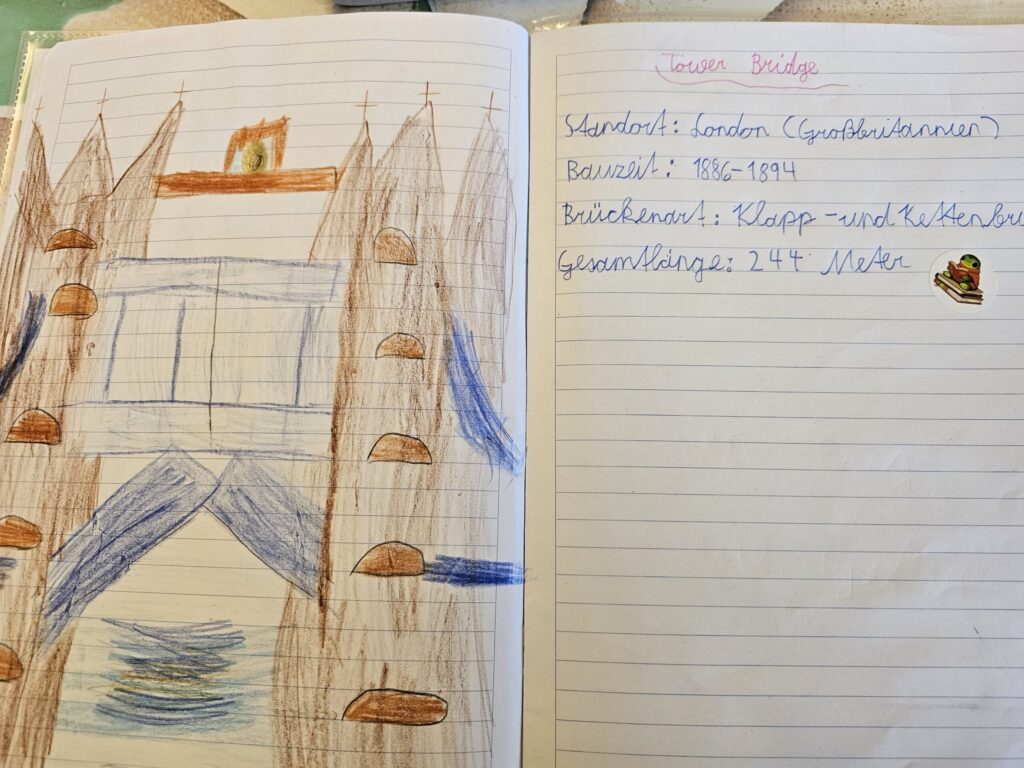 Tower Bridge
Standort: London (Großbritannien)
Bauzeit: 1886-1894
Brückenart: Klapp-und Kettenbrü
Gesamtlänge: 244 Meter